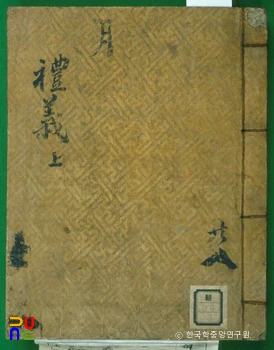 月
禮義 上
共八
ⓒ 한국학중앙연구원